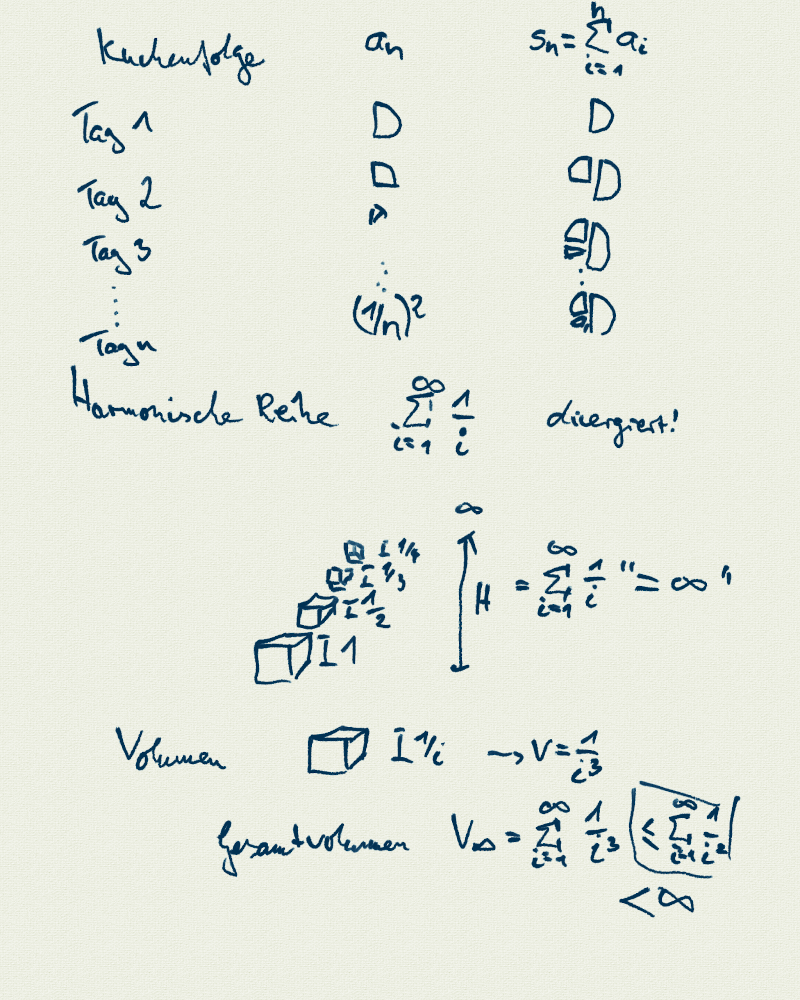 Kuchenfolge aₙ sₙ = ∑ⁿᵢ₌₁ aᵢ
Tag 1
Tag 2
Tag 3
⋮
Tag n (1/n)²
Harmonische Reihe ∑^∞ᵢ₌₁ 1/i divergiert!
∞
I 1/4
I 1/3
I 1/2
I 1
H = ∑^∞ᵢ₌₁ 1/i "= ∞"
Volumen I 1/i → V = 1/i³
Gesamtvolumen V = ∑^∞ᵢ₌₁ 1/i³ ≤ ∑^∞ᵢ₌₁ 1/i²
< ∞